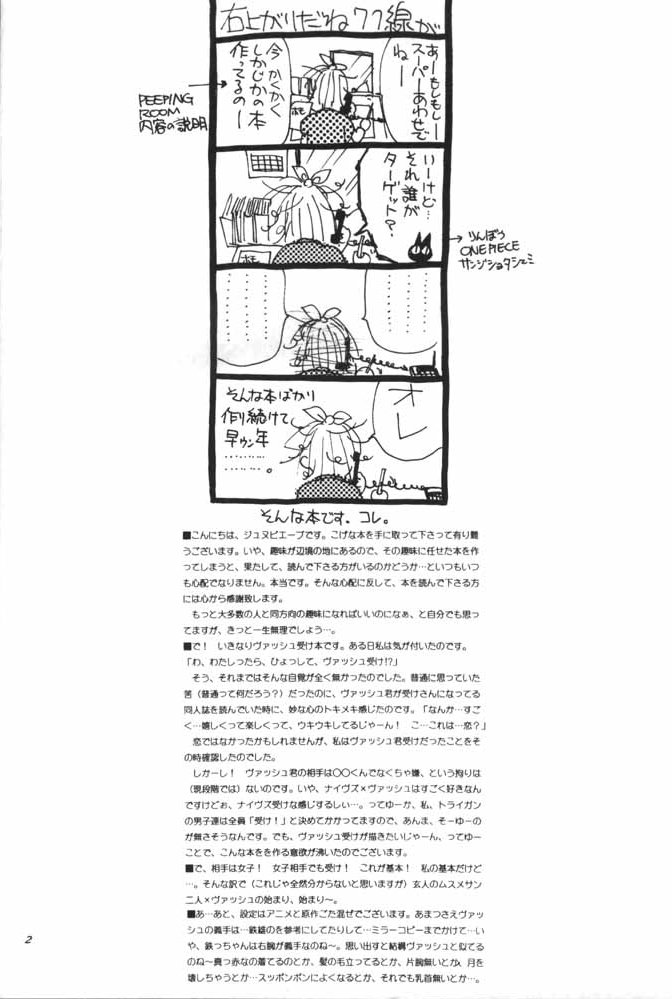 右上がりだね77線が
あーもしもしー
スーパーあわせで
ねー
今 かくかく
しかじかの本
作ってるのー
PEEPING
ROOM
内容の説明
ホモ
いーけど…
それ誰が
ターゲット?
りんぼう
ONE PIECE
サンジショタシェミ
ホモ
…………
…………
…………
…………
オレ
そんな本ばかり
作り続けて
早ウン年
………
………。
そんな本です、コレ。
■こんにちは、ジュヌビエーブです。こげな本を手に取って下さって有り難
うございます。いや、趣味が辺境の地にあるので、その趣味に任せた本を作
ってしまうと、果たして、読んで下さる方がいるのかどうか…といつもいつ
も心配でなりません。本当です。そんな心配に反して、本を読んで下さる方
には心から感謝致します。
もっと大多数の人と同方向の趣味になればいいのになぁ、と自分でも思っ
てますが、きっと一生無理でしょう…。
■で! いきなりヴァッシュ受け本です。ある日私は気が付いたのです。
「わ、わたしったら、ひょっして、ヴァッシュ受け!?」
そう、それまではそんな自覚が全く無かったのでした。普通に思っていた
筈(普通って何だろう?)だったのに、ヴァッシュ君が受けさんになってる
同人誌を読んでいた時に、妙な心のトキメキ感じたのです。「なんか…すご
く…嬉しくって楽しくって、ウキウキしてるじゃーん! こ…これは…恋?」
恋ではなかったかもしれませんが、私はヴァッシュ君受けだったことをそ
の時確認したのでした。
しかーし! ヴァッシュ君の相手は〇〇くんでなくちゃ嫌、という拘りは
(現段階では)ないのです。いや、ナイヴズ×ヴァッシュはすごく好きなん
ですけどぉ、ナイヴズ受けな感じするしぃ…。ってゆーか、私、トライガン
の男子達は全員「受け!」と決めてかかってますので、あんま、そーゆーの
が無さそうなんです。でも、ヴァッシュ受けが描きたいじゃーん、ってゆー
ことで、こんな本をを作る意欲が沸いたのでございます。
■で、相手は女子! 女子相手でも受け! これが基本! 私の基本だけど
…。そんな訳で(これじゃ全然分からないと思いますが)玄人のムスメサン
二人×ヴァッシュの始まり、始まり~。
■あ…あと、設定はアニメと原作ごた混ぜでございます。あまつさえヴァッ
シュの義手は…鉄雄のを参考にしてたりして…ミラーコピーまでかけて…い
や、鉄っちゃんは右腕が義手なのね~。思い出すと結構ヴァッシュと似てる
のね~真っ赤なの着てるのとか、髪の毛立ってるとか、片腕無いとか、月を
壊しちゃうとか…スッポンポンによくなるとか、それでも乳首無いとか…。
2